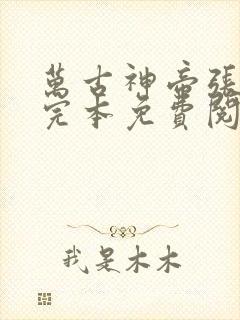 萬古神帝張
完本免費閱
我是木木